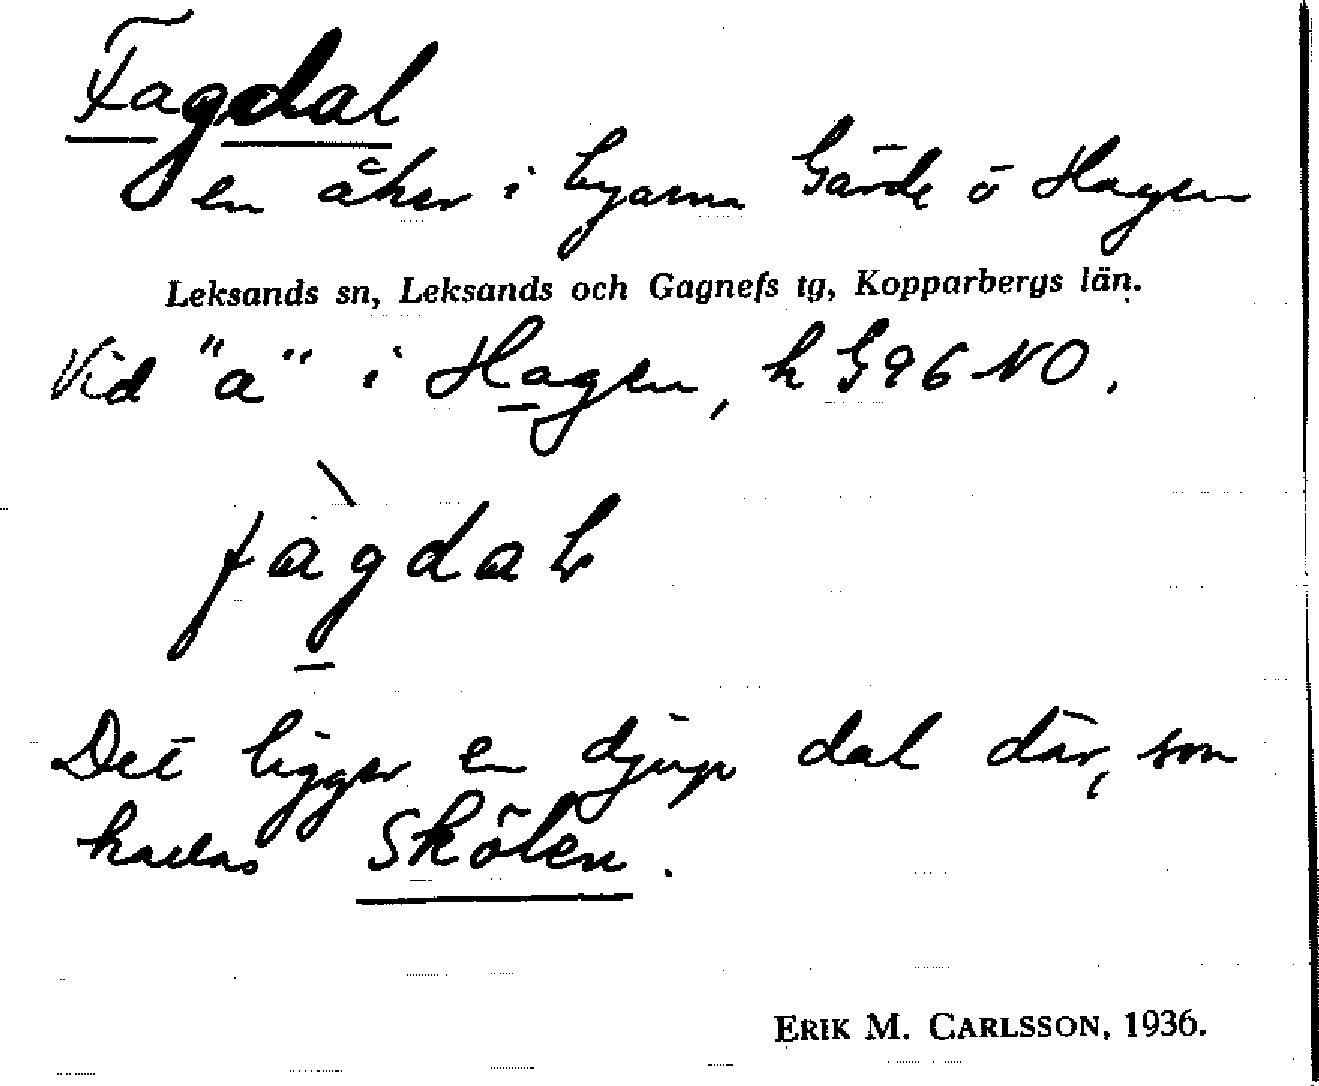 Fagdal
en åker i byarna Gärde o Hagen
Leksands sn, Leksands och Gagnefs tg, Kopparbergs län.
Vid "a" i Hagen, k G96 NO.
fàgdal
Det ligger en djup dal där, som
kallas Skölen.
ERIK M. CARLSSON, 1936.